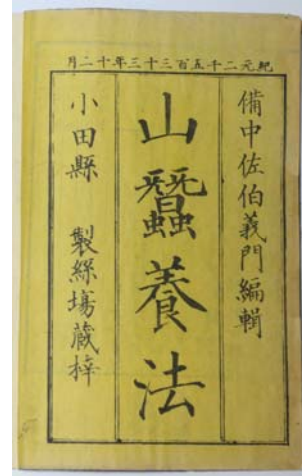 紀元二千五百三十三年十二月
備中佐伯義門編輯
山蠶養法
小田縣 製絲塲蔵梓